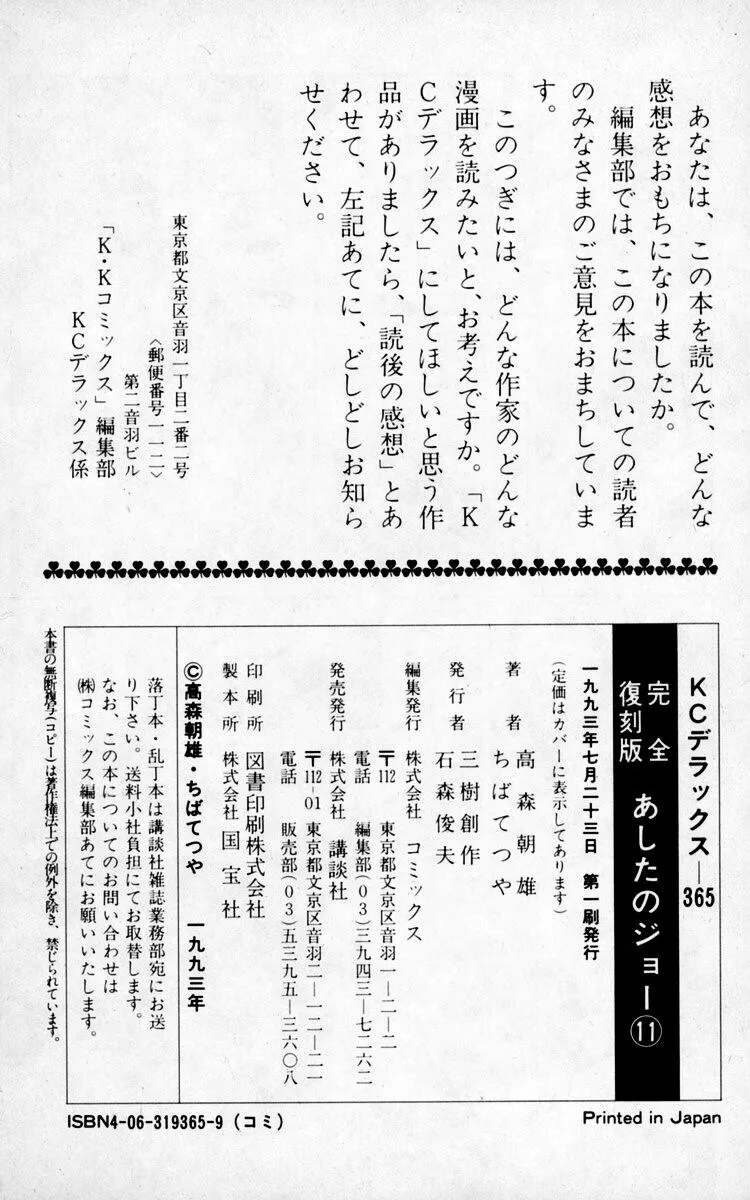 あなたは、この本を読んで、どんな
感想をおもちになりましたか。
編集部では、この本についての読者
のみなさまのご意見をおまちしていま
す。
このつぎには、どんな作家のどんな
漫画を読みたいと、お考えですか。「K
Cデラックス」にしてほしいと思う作
品がありましたら、「読後の感想」とあ
わせて、左記あてに、どしどしお知ら
せください。
東京都文京区音羽一丁目二番二号
〈郵便番号一一二〉
第二音羽ビル
「K・Kコミックス」編集部
KCデラックス係
KCデラックス—365
完全
復刻版 あしたのジョー⑪
一九九三年七月二十三日 第一刷発行
(定価はカバーに表示してあります)
著者 高森朝雄
ちばてつや
発行者 三樹創作
石森俊夫
編集発行 株式会社 コミックス
〒112 東京都文京区音羽一—二—二
電話 編集部(03)三九四三—七二六二
発売発行 株式会社 講談社
〒112-01 東京都文京区音羽二—一二—二一
電話 販売部(03)五三九五—三六〇八
印刷所 図書印刷株式会社
製本所 株式会社 国宝社
©高森朝雄・ちばてつや 一九九三年
落丁本・乱丁本は講談社雑誌業務部宛にお送
り下さい。送料小社負担にてお取替します。
なお、この本についてのお問い合わせは
㈱コミックス編集部あてにお願いいたします。
本書の無断複写(コピー)は著作権法上での例外を除き、禁じられています。
ISBN4-06-319365-9 (コミ)
Printed in Japan